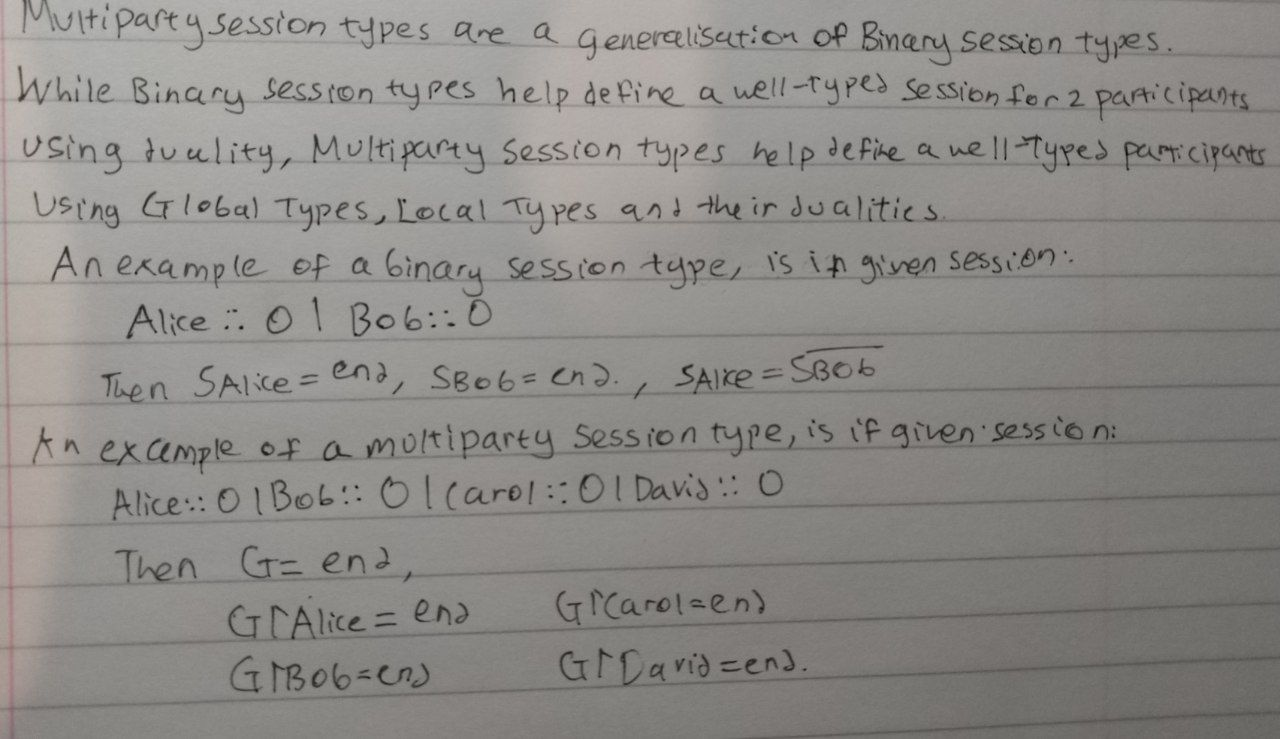 Multiparty session types are a generalisation of Binary session types.
While Binary session types help define a well-typed session for 2 participants
using duality, Multiparty session types help define a well-typed participants
Using Global Types, Local Types and their dualities.
An example of a binary session type, is if given session:
Alice :: 0 | Bob :: 0
Then SAlice = end, SBob = end. , SAlice = S̅B̅o̅b̅
An example of a multiparty session type, is if given session:
Alice :: 0 | Bob :: 0 | Carol :: 0 | David :: 0
Then G = end,
G↾Alice = end G↾Carol = end
G↾Bob = end G↾David = end.